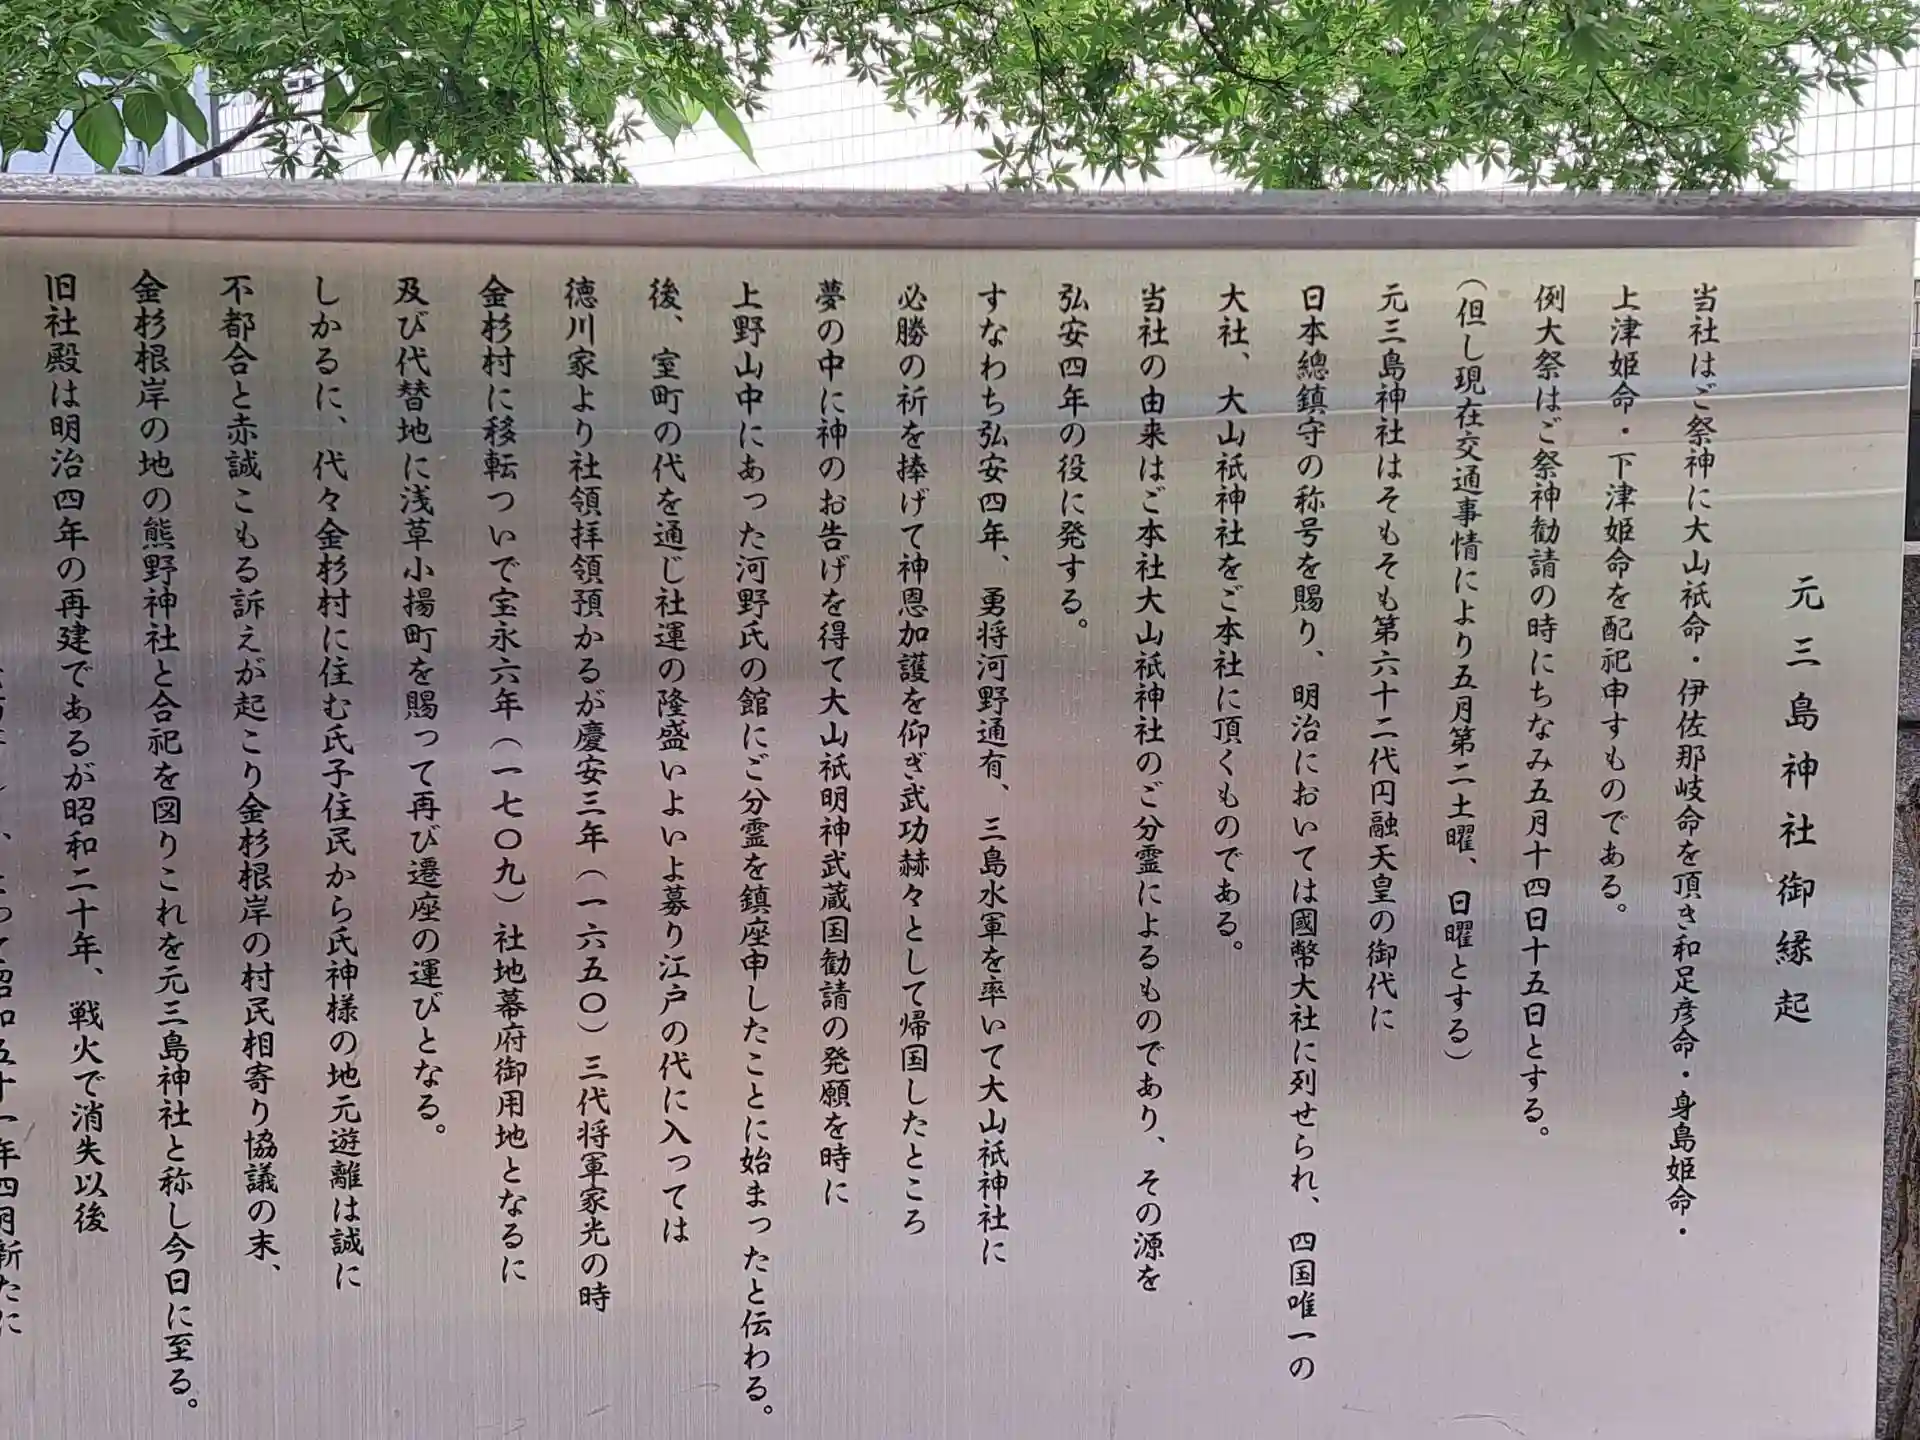 元三島神社御縁起
当社はご祭神に大山祇命・伊佐那岐命を頂き和足彦命・身島姫命・
上津姫命・下津姫命を配祀申すものである。
例大祭はご祭神勧請の時にちなみ五月十四日十五日とする。
（但し現在交通事情により五月第二土曜、日曜とする）
元三島神社はそもそも第六十二代円融天皇の御代に
日本總鎮守の称号を賜り、明治においては國幣大社に列せられ、四国唯一の
大社、大山祇神社をご本社に頂くものである。
当社の由来はご本社大山祇神社のご分霊によるものであり、その源を
弘安四年の役に発する。
すなわち弘安四年、勇将河野通有、三島水軍を率いて大山祇神社に
必勝の祈を捧げて神恩加護を仰ぎ武功赫々として帰国したところ
夢の中に神のお告げを得て大山祇明神武蔵国勧請の発願を時に
上野山中にあった河野氏の館にご分霊を鎮座申したことに始まったと伝わる。
後、室町の代を通じ社運の隆盛いよいよ募り江戸の代に入っては
徳川家より社領拝領預かるが慶安三年（一六五〇）三代将軍家光の時
金杉村に移転ついで宝永六年（一七〇九）社地幕府御用地となるに
及び代替地に浅草小揚町を賜って再び遷座の運びとなる。
しかるに、代々金杉村に住む氏子住民から氏神様の地元遊離は誠に
不都合と赤誠こもる訴えが起こり金杉根岸の村民相寄り協議の末、
金杉根岸の地の熊野神社と合祀を図りこれを元三島神社と称し今日に至る。
旧社殿は明治四年の再建であるが昭和二十年、戦火で消失以後
昭和五十一年四月新たに